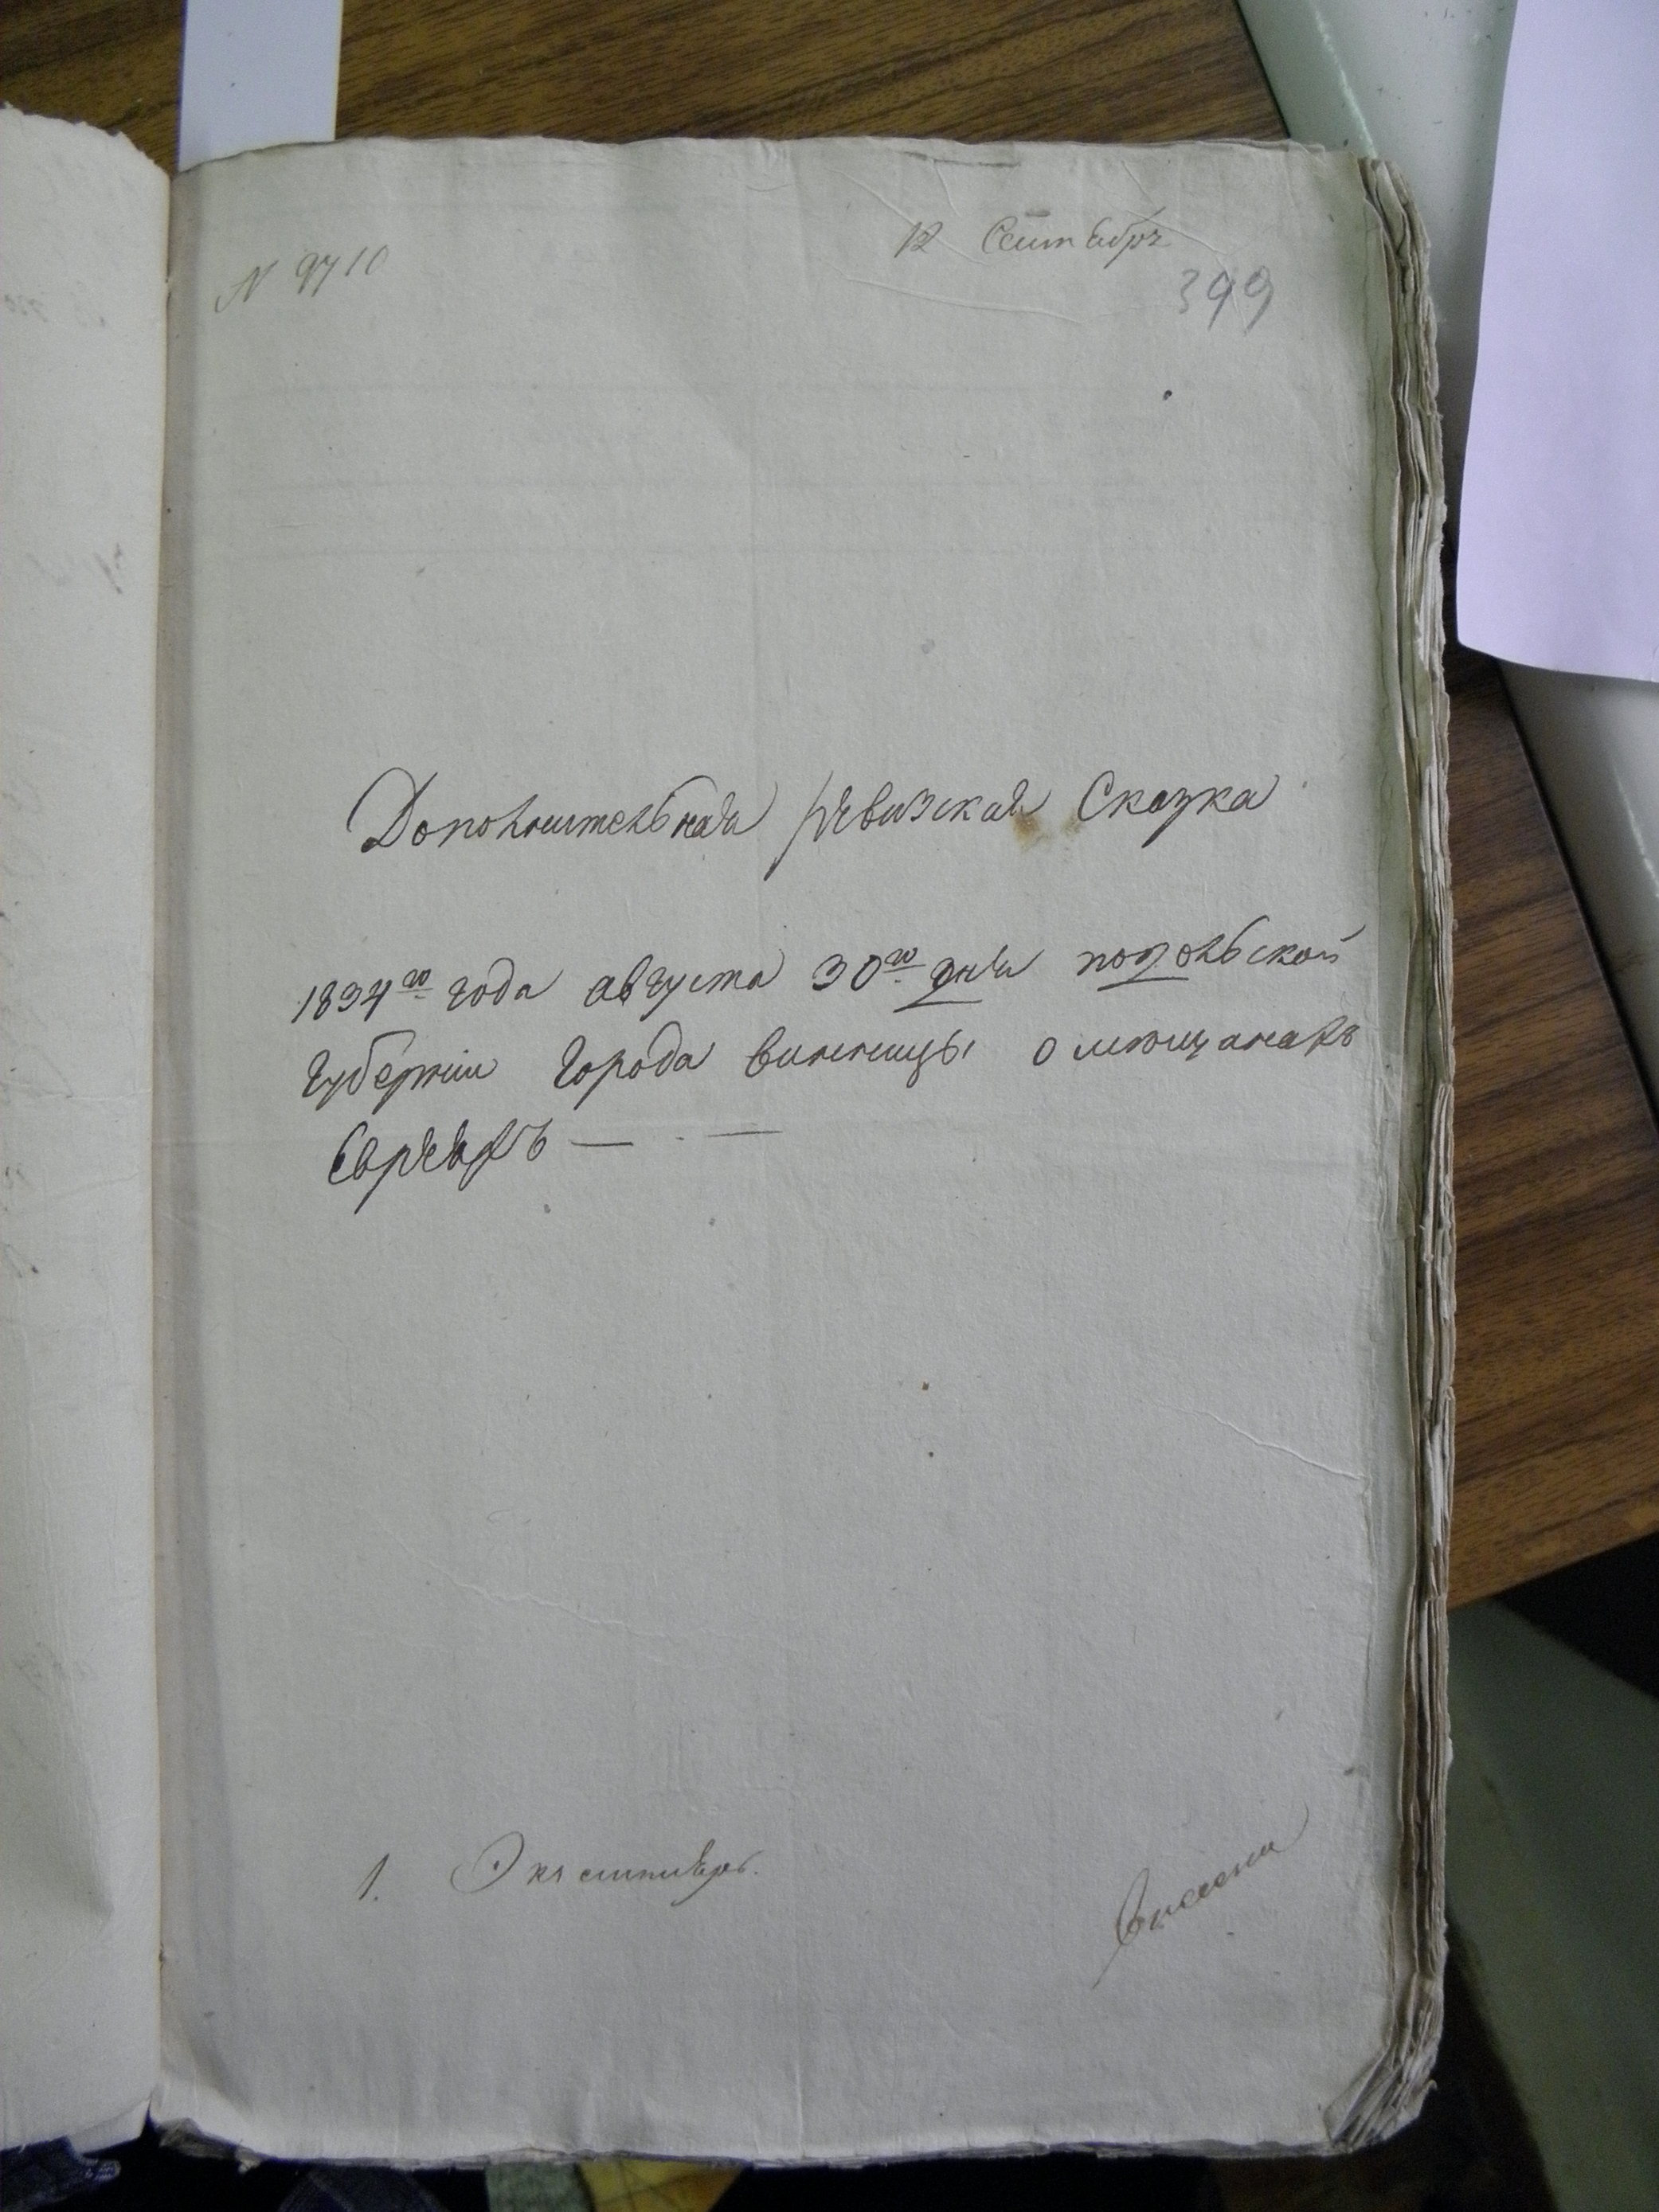 N 9710
12 Сентября
399
Дополнительная ревизская Сказка
1834го года августа 30го дня подольской
губернии города винницы о мещанахъ
Евреяхъ — . —
1.